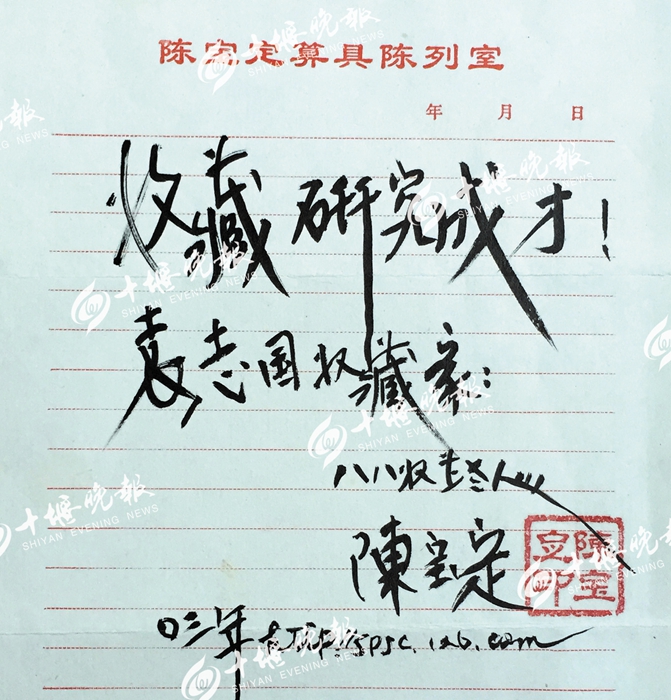 陈宝定算具陈列室
年 月 日
收藏研究成才！
袁志国收藏家：
八八收
陳宝定
陳宝定印
03年
十堰晚報
SHIYAN EVENING NEWS